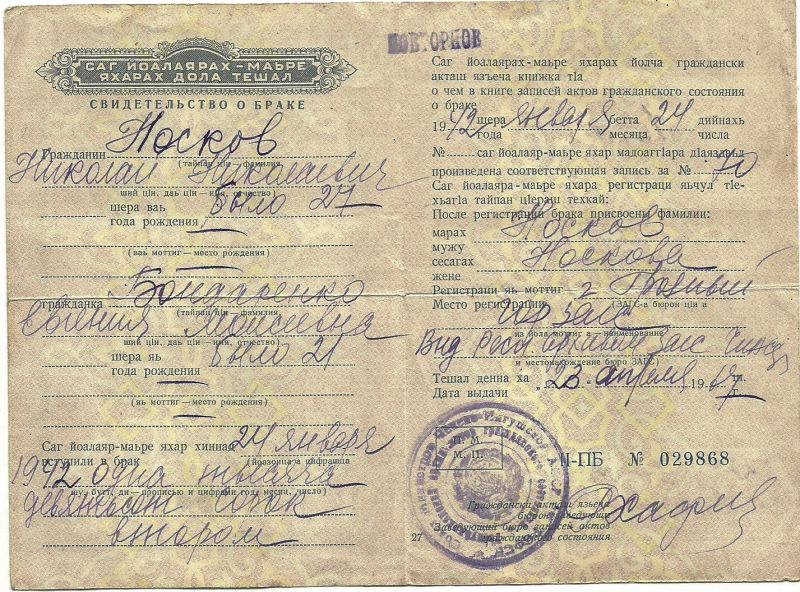 САГ ЙОАЛАЯРАХ - МАЬРЕ
ЯХАРАХ ДОЛА ТЕШАЛ
СВИДЕТЕЛЬСТВО О БРАКЕ
Гражданин Носков
(тайпан цIи — фамилия
Николай Николаевич
ший цIи, даь цIи — имя, отчество)
шера ваь было 27
года рождения
(ваь моттиг — место рождения)
гражданка Бондаренко
(тайпан цIи — фамилия
Евгения Моисеевна
ший цIи, даь цIи — имя, отчество)
шера яь было 21
года рождения
(яь моттиг — место рождения)
Саг йоалаяр-маьре яхар хиннад 24 января
вступили в брак
1942 одна тысяча
шу, бутт, ди — прописью и цифрами год, месяц, число)
девятьсот сорок
втором
ПОВТОРНОЕ
Саг йоалаярах-маьре яхарах йолча граждански
акташ язъеча книжка тIа
о чем в книге записей актов гражданского состояния
о браке
1942 шера января бетта 24 дийнахь
года месяца числа
№ саг йоалаяр-маьре яхар мадоаггIара дIаяздаьд
произведена соответствующая запись за № 70
Саг йоалаяра-маьре яхара регистраци яьчул тIе-
хьагIа тайпан цIераш техкай:
После регистрации брака присвоены фамилии:
марах Носков
мужу
сесагах Носкова
жене
Регистраци яь моттиг г. Грозный
Место регистрации (ЗАГС-а бюрон цIи а
из дола моттиг а — наименование
и местонахождение бюро ЗАГС)
Тешал денна ха 23 апреля 1967 г.
Дата выдачи
П. М.
М. П.
II-ПБ № 029868
Граждански акташ язъена
бюрон заведующи
Заведующий бюро записей актов
гражданского состояния
27